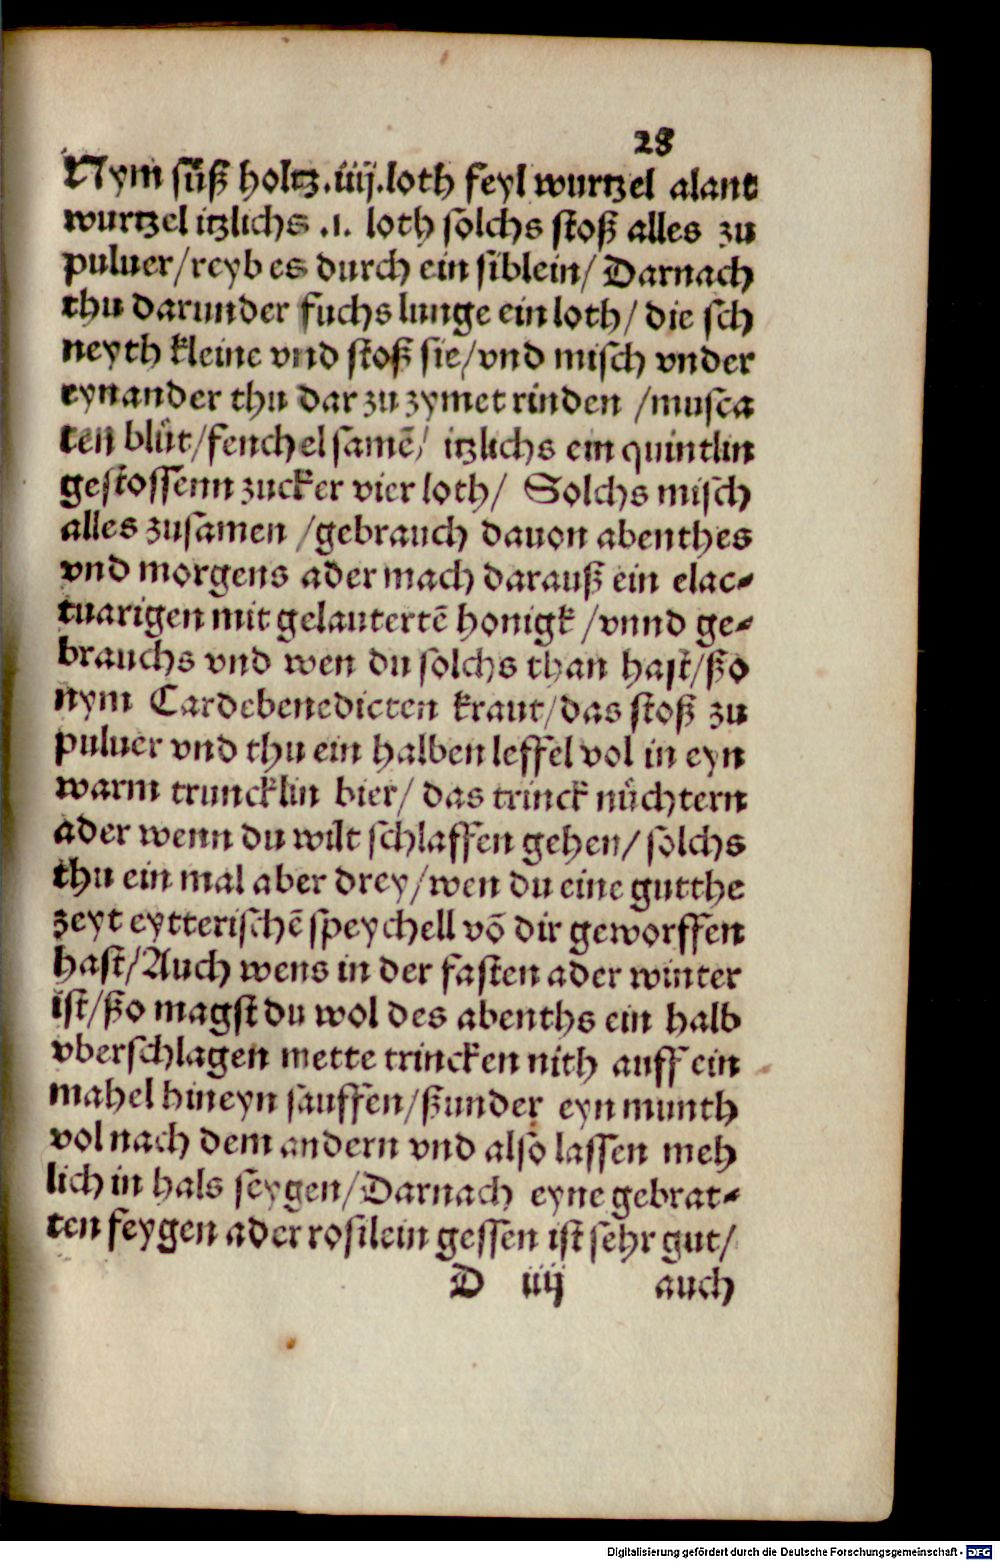 28
Nym süß holtz .iiij. loth feyl wurtzel alant
wurtzel itzlichs .1. loth solchs stoß alles zu
puluer/reyb es durch ein siblein/ Darnach
thu darunder fuchs lunge ein loth/ die sch
neyth kleine vnd stoß sie/vnd misch vnder
eynander thu dar zu zymet rinden /musca
ten blůt/fenchel samē/ itzlichs ein quintlin
gestossenn zucker vier loth/ Solchs misch
alles zusamen /gebrauch dauon abenthes
vnd morgens ader mach darauß ein elac-
tuarigen mit gelautertē honigk /vnnd ge-
brauchs vnd wen du solchs than hast/ßo
nym Cardebenedicten kraut/das stoß zu
puluer vnd thu ein halben leffel vol in eyn
warm truncklin bier/ das trinck nůchtern
ader wenn du wilt schlaffen gehen/ solchs
thu ein mal aber drey/wen du eine gutthe
zeyt eytterischē speychell vō dir geworffen
hast/Auch wens in der fasten ader winter
ist/ßo magst du wol des abenths ein halb
vberschlagen mette trincken nith auff ein
mahel hineyn sauffen/ßunder eyn munth
vol nach dem andern vnd also lassen meh
lich in hals seygen/Darnach eyne gebrat-
ten feygen ader rosilein gessen ist sehr gut/
D iiij auch
Digitalisierung gefördert durch die Deutsche Forschungsgemeinschaft - DFG